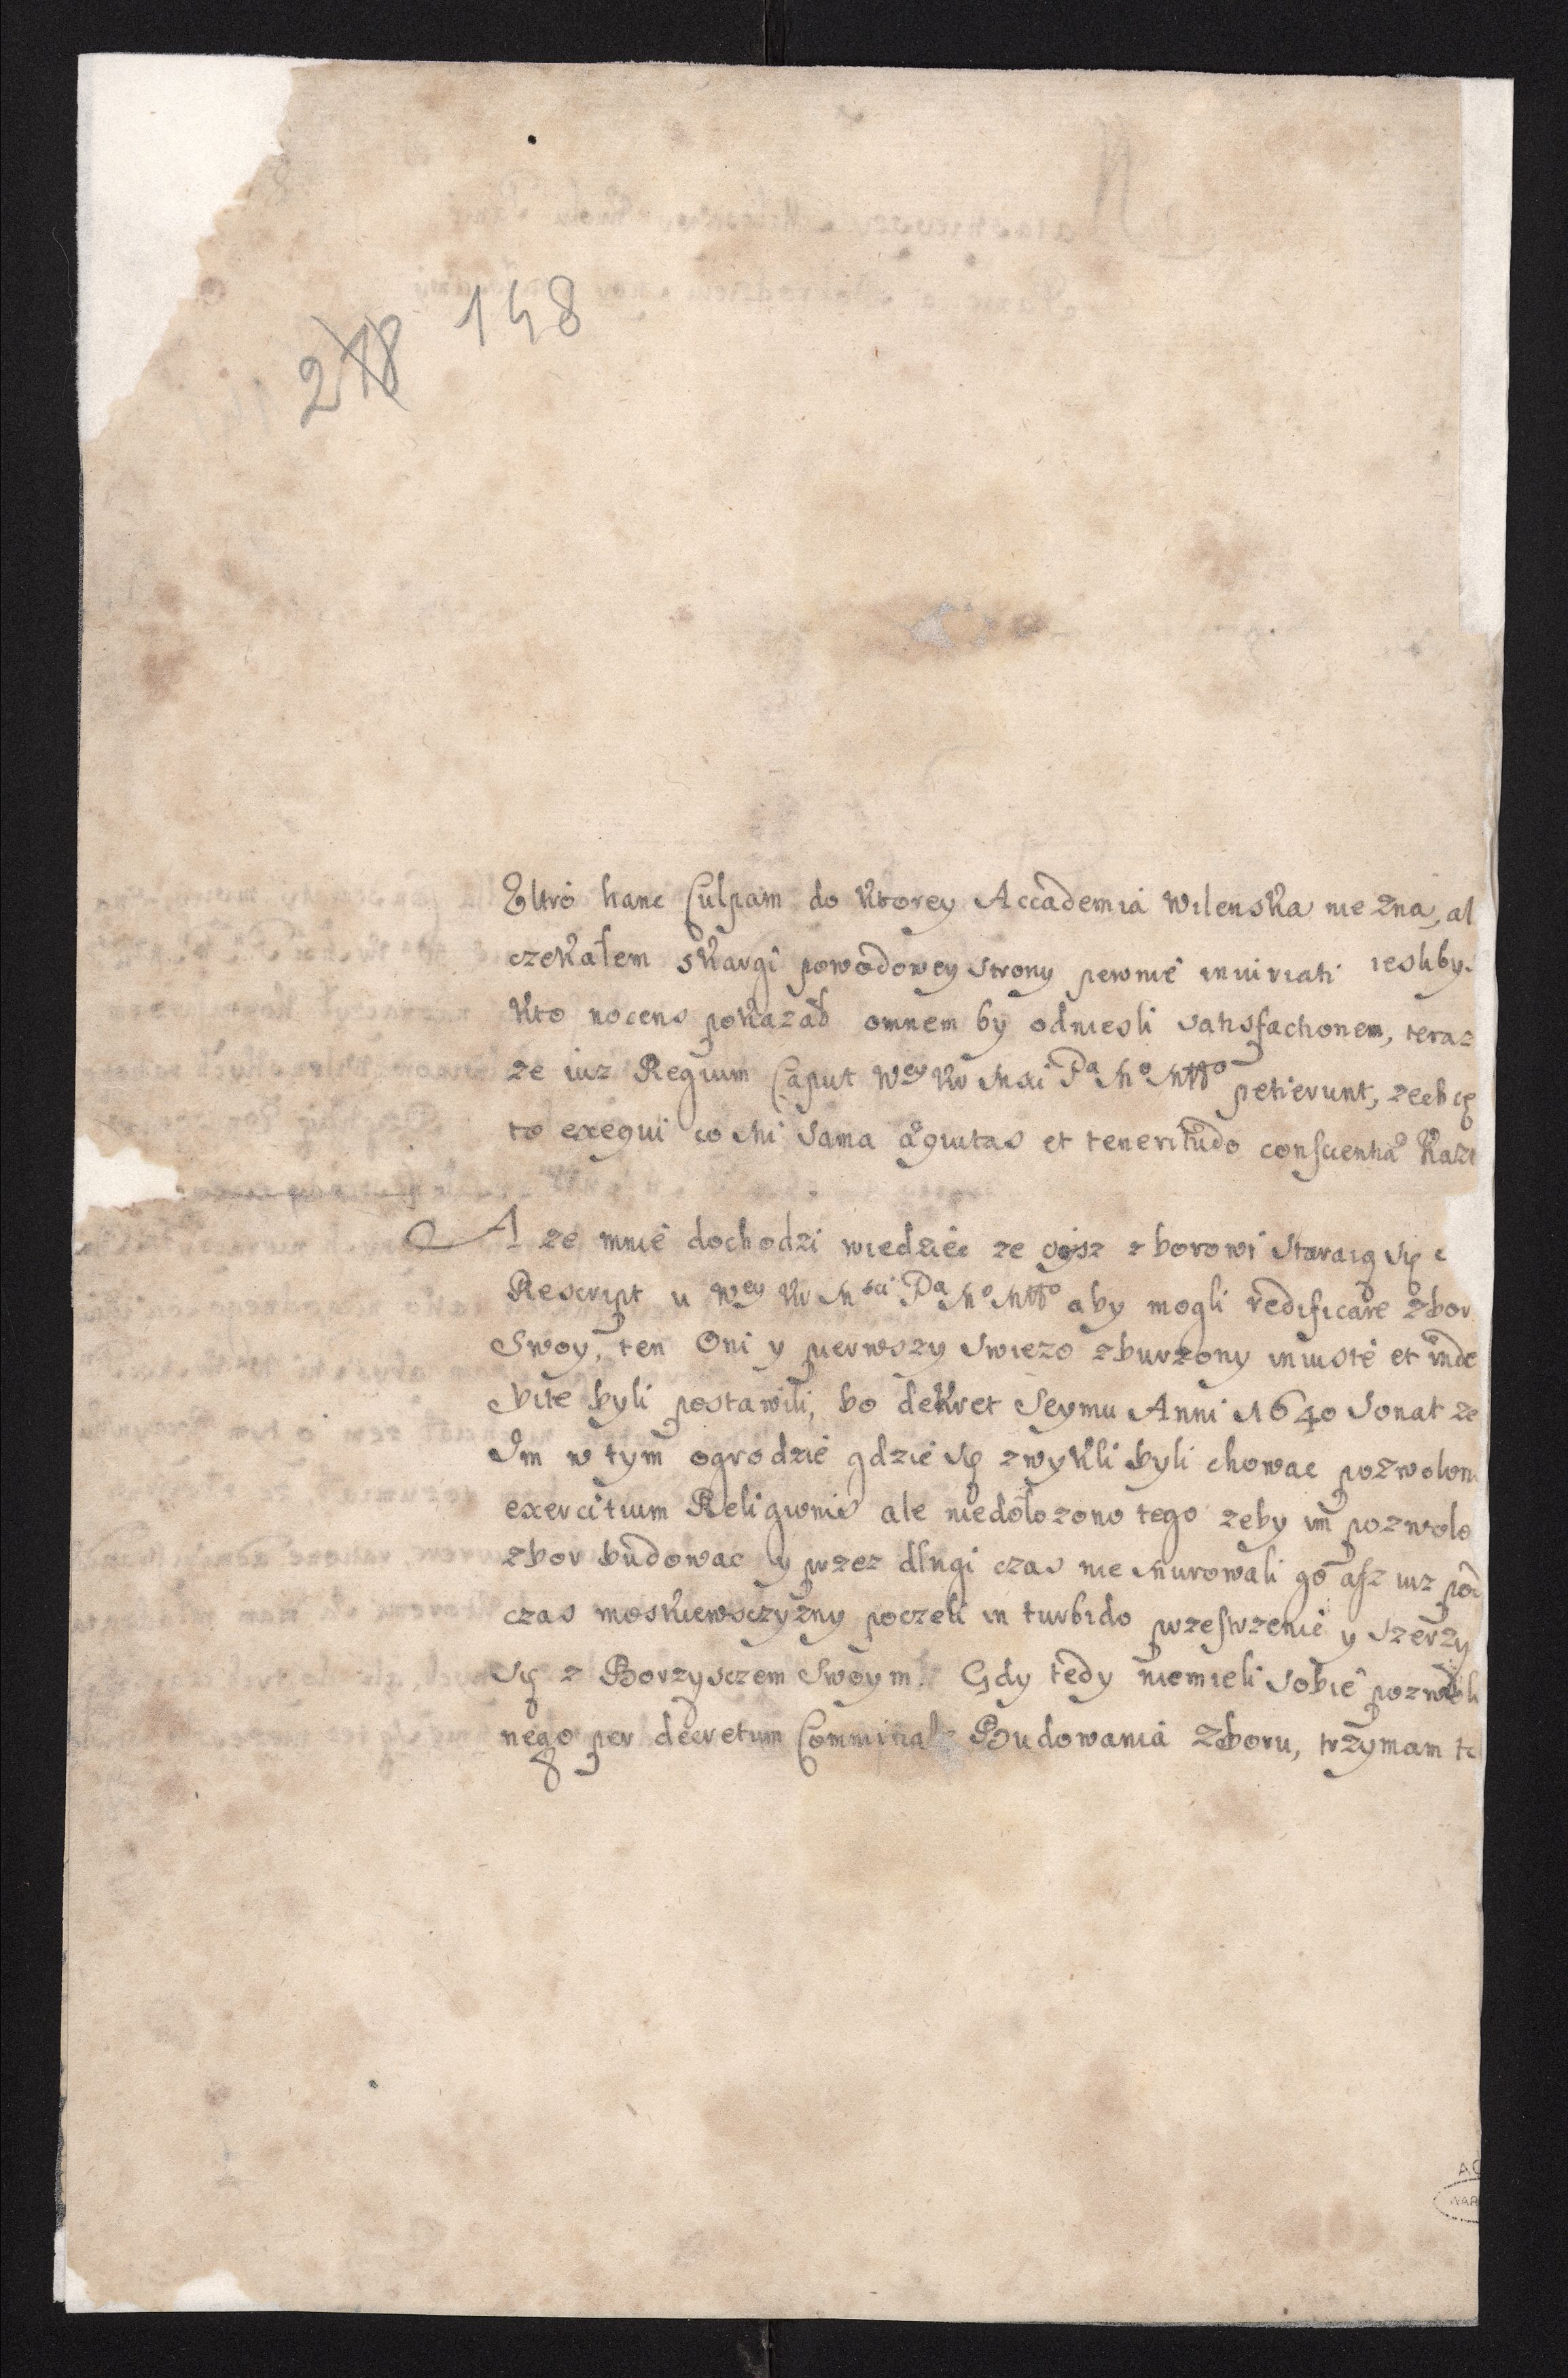 148
278
Ultro hanc Culpam do ktorey Accademia Wilenska nie zna, al
czekałem skargi powodowey strony pewnie iniuriati iesliby
kto nocens pokazał omnem by odniesli satisfactionem, teraz
ze iuz Regium Caput Wey Kr Msci Pa Mo Mttto petierunt, zechcę
to exequi co Mi sama æquitas et teneritudo conscientiæ każe
A ze mnie dochodzi wiedziec ze zborowi staraią się
Rescript u Wey Kr Msci Pa Mo Mttto aby mogli redificare zbor
Swoy, ten Oni y pierwszy swiezo zburzony iniuste et inde
bite byli postawili, bo dekret Seymu Anni 1640 sonat ze
Im w tym ogrodzie gdzie się zwykli byli chowac pozwolon
exercitium Religionis ale niedołozono tego zeby im pozwolo
zbor budowac y przez długi czas nie murowali go asz iuz pod
czas moskiewsczyzny poczeli in turbido przestrzenie y szerzy
się z Borzysczem Swoym. Gdy tedy niemieli sobie pozwoli
nego per decretum Commitiale Budowania Zboru, trzymam te